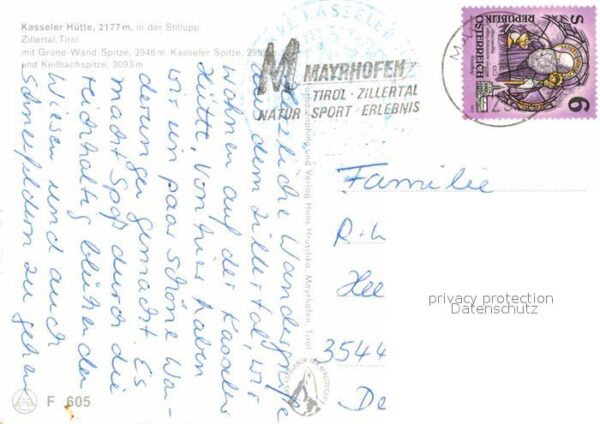 Kasseler Hütte, 2177m, in der Stillupp
Zillertal, Tirol
mit Grüne-Wand-Spitze, 2946m, Kasseler Spitze,
und Keilbachspitze, 3093m
KASSELER
M MAYRHOFEN
TIROL · ZILLERTAL
NATUR · SPORT · ERLEBNIS
REPUBLIK
ÖSTERREICH
S 6
Herzliche Wandergrüße
aus dem Zillertal, wir
wohnen auf der Kasseler
Hütte, von hier haben
wir ein paar schöne Wan-
derungen gemacht. Es
macht Spaß durch die
reichhaltig blühenden
Wiesen und auch
Schneefeldern zu gehen
Verlag Hans Hruschka, Mayrhofen, Tirol
Familie
R + U
Hee
3544
De
privacy protection
Datenschutz
F 605